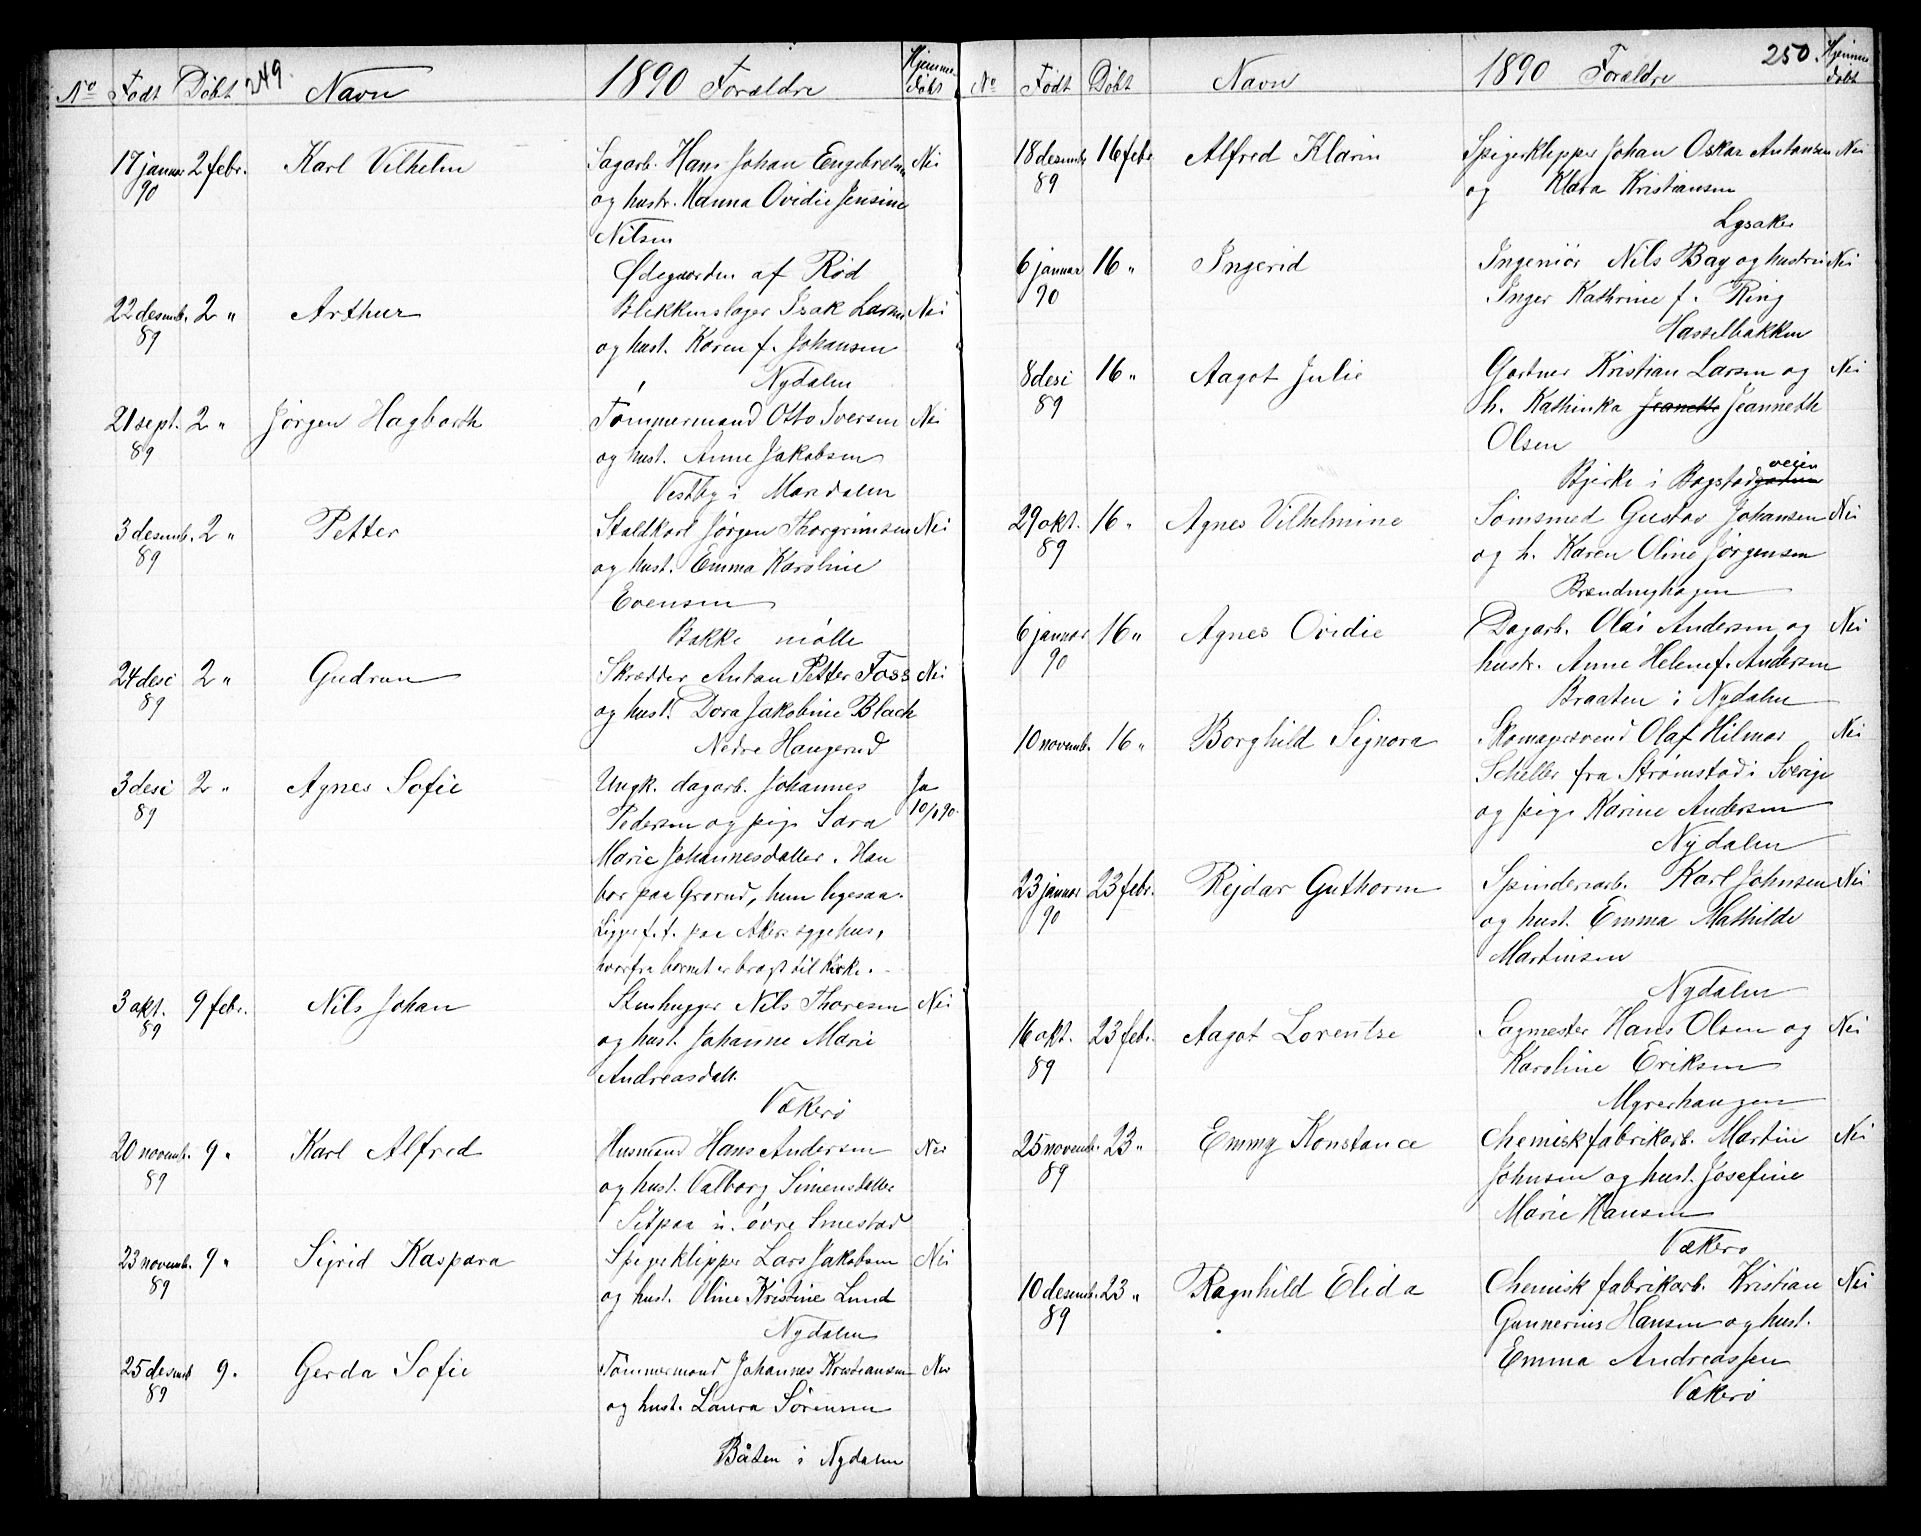 No Født Døbt 249 Navn 1890 Forældre Hjemme døbt
17 januar 90 2 febr. Karl Vilhelm Sagarb. Hans Johan Engebretsen Nei
og hustr. Hanna Ovidie Jensine
Nilsen
Ødegaarden af Rød
22 desemb. 89 2 " Arthur Blikkenslager Isak Larsen Nei
og hust. Karen f. Johansen
Nydalen
21 sept. 89 2 " Jørgen Hagbarth Tømmermand Otto Iversen Nei
og hust. Anne Jakobsen
Vestby i Maridalen
3 desemb. 89 2 " Petter Staldkarl Jørgen Thorgrimsen Nei
og hust. Emma Karoline
Evensen
Bakke mølle
24 desi 89 2 " Gudrun Skrædder Anton Petter Foss Nei
og hust. Dora Jakobine Black
Nedre Haugerud
3 desi 89 2 " Agnes Sofie Ungk. dagarb. Johannes Ja
Pedersen og pige Sara 10/1 90.
Marie Johannesdatter. Han
bor paa Grorud, hun ligesaa.
Ligger f. t. paa Akers sygehus,
hvorfra barnet er bragt til kirke.
3 okt. 89 9 febr. Nils Johan Stenhugger Nils Thoresen Nei
og hust. Johanne Marie
Andreasdatt.
Vækerø
20 novemb. 89 9 " Karl Alfred Husmand Hans Andersen Nei
og hust. Valborg Simensdatter
Setpaa u. øvre Smestad
23 novemb. 89 9 " Sigrid Kaspara Spigerklipper Lars Jakobsen Nei
og hust. Oline Kristine Lund
Nydalen
25 desemb 89 9 " Gerda Sofie Tømmermand Johannes Kristiansen Nei
og hust. Laura Sørensen
Båten i Nydalen
No Født Døbt Navn 1890 Forældre 250 Hjemme døbt
18 desemb. 89 16 febr. Alfred Klarin Spigerklipper Johan Oskar Antonsen Nei
og Klara Kristiansen
Lysaker
6 januar 90 16 " Ingerid Ingeniør Nils Bay og hustru Nei
Inger Kathrine f. Ring
Hasselbakken
8 desi 89 16 " Aagot Julie Gartner Kristian Larsen og Nei
h. Kathinka Jeanette Jeanneth
Olsen
Bjerke i Bogstadgaden veien
29 okt. 89 16 " Agnes Vilhelmine Sømsmed Gustav Johansen Nei
og h. Karen Oline Jørgensen
Brændinghagen
6 januar 90 16 " Agnes Ovidie Dagarb. Olai Andersen og Nei
hustr. Anne Helene f. Andersen
Braaten i Nydalen
10 novemb. 16 " Borghild Signora Skomagersvend Olaf Hilmar Nei
Scheller fra Strømstad i Sverige
og pige Karine Andersen
Nydalen
23 januar 90 23 febr. Rejdar Guthorm Spinderiarb. Karl Johnsen Nei
og hust. Emma Mathilde
Martinsen
Nydalen
16 okt. 89 23 febr. Aagot Lorentse Sagmester Hans Olsen og Nei
Karoline Eriksen
Myrerhaugen
25 novemb. 89 23 " Emmy Konstance Chemiskfabrikarb. Martin Nei
Johnsen og hust. Josefine
Marie Hansen
Vækerø
10 desemb. 89 23 " Ragnhild Elida Chemisk fabrikarb. Kristian Nei
Gunnerius Hansen og hust.
Emma Andreassen
Vækerø